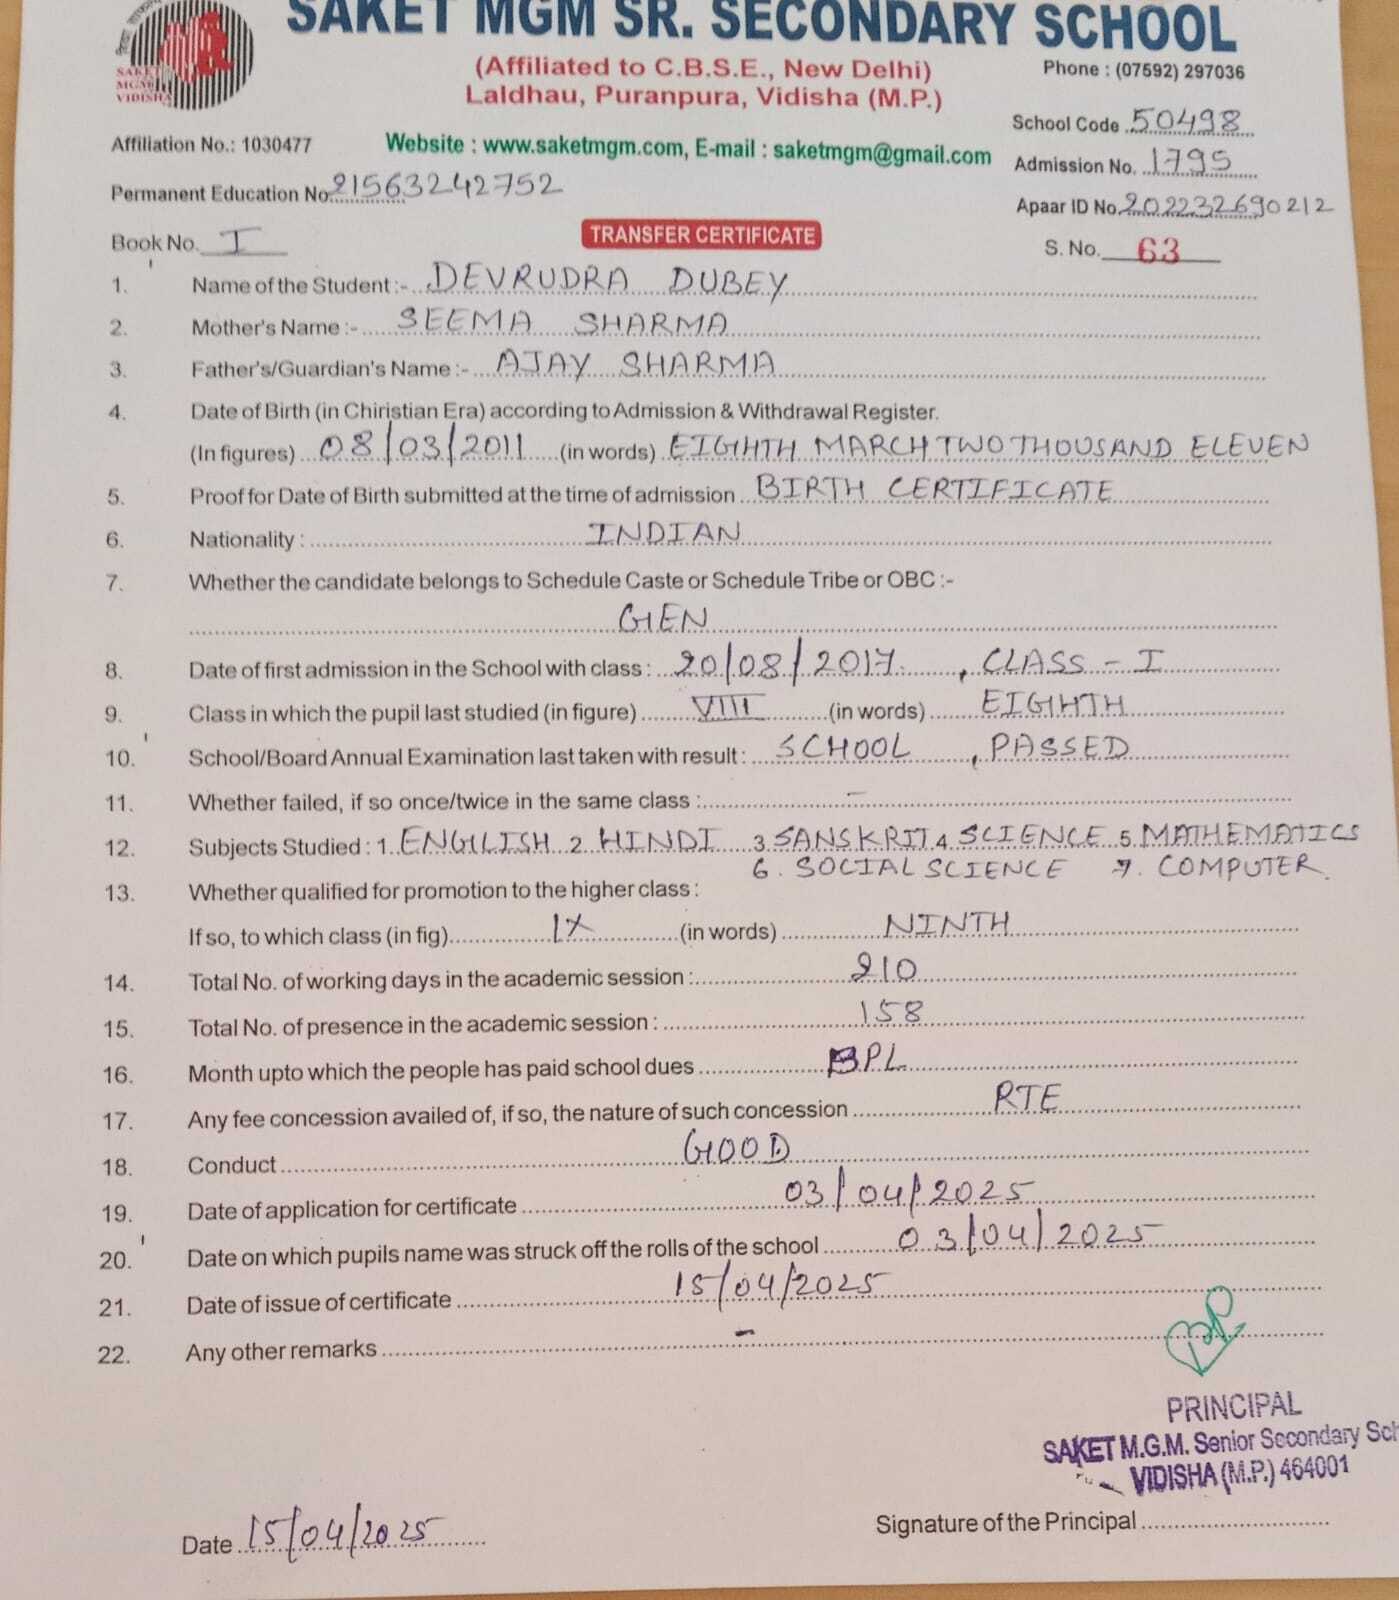 SAKET MGM SR. SECONDARY SCHOOL
(Affiliated to C.B.S.E., New Delhi)
Phone : (07592) 297036
Laldhau, Puranpura, Vidisha (M.P.)
SAKET
MGM
VIDISHA
School Code 50498
Affiliation No.: 1030477
Website : www.saketmgm.com, E-mail : saketmgm@gmail.com
Admission No. 1795
Permanent Education No. 21563242752
Apaar ID No. 202232690212
Book No. I
TRANSFER CERTIFICATE
S. No. 63
1. Name of the Student :- DEVRUDRA DUBEY
2. Mother's Name :- SEEMA SHARMA
3. Father's/Guardian's Name :- AJAY SHARMA
4. Date of Birth (in Chiristian Era) according to Admission & Withdrawal Register.
(In figures) 08/03/2011 (in words) EIGHTH MARCH TWO THOUSAND ELEVEN
5. Proof for Date of Birth submitted at the time of admission BIRTH CERTIFICATE
6. Nationality : INDIAN
7. Whether the candidate belongs to Schedule Caste or Schedule Tribe or OBC :-
GEN
8. Date of first admission in the School with class : 20/08/2017 , CLASS - I
9. Class in which the pupil last studied (in figure) VIII (in words) EIGHTH
10. School/Board Annual Examination last taken with result : SCHOOL , PASSED
11. Whether failed, if so once/twice in the same class : -
12. Subjects Studied : 1. ENGLISH 2. HINDI 3. SANSKRIT 4. SCIENCE 5. MATHEMATICS
6. SOCIAL SCIENCE 7. COMPUTER.
13. Whether qualified for promotion to the higher class :
If so, to which class (in fig) IX (in words) NINTH
14. Total No. of working days in the academic session : 210
15. Total No. of presence in the academic session : 158
16. Month upto which the people has paid school dues BPL
17. Any fee concession availed of, if so, the nature of such concession RTE
18. Conduct GOOD
19. Date of application for certificate 03/04/2025
20. Date on which pupils name was struck off the rolls of the school 03/04/2025
21. Date of issue of certificate 15/04/2025
22. Any other remarks -
PRINCIPAL
SAKET M.G.M. Senior Secondary Sch
VIDISHA (M.P.) 464001
Signature of the Principal
Date 15/04/2025